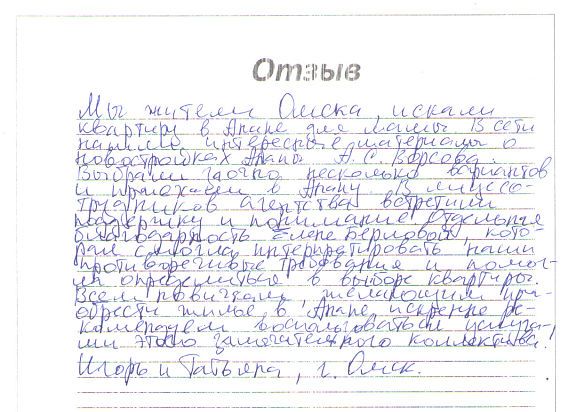 Отзыв
Мы жители Омска, искали
квартиру в Анапе для мамы. В сети
нашли интересные материалы о
новостройках Анапы А. С. Ворсова.
Выбрали заочно несколько вариантов
и приехали в Анапу. В лице со-
трудников агентства встретили
поддержку и понимание. Отдельная
благодарность Елене Берловой, кото-
рая смогла интерпретировать наши
противоречивые требования и помог-
ла определиться в выборе квартиры.
Всем новичкам, желающим при-
обрести жилье в Анапе, искренне ре-
комендуем воспользоваться услуга-
ми этого замечательного коллектива!
Игорь и Татьяна, г. Омск.